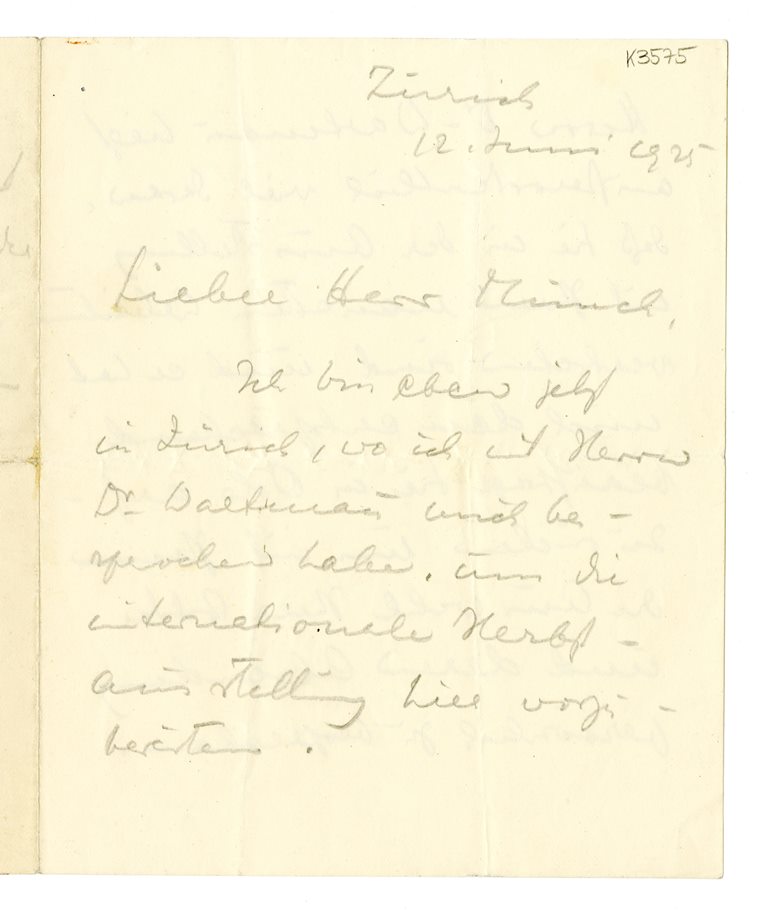 K3575
Zürich
12. Juni 1925
Lieber Herr Munch,
Ich bin eben jetzt
in Zürich, wo ich mit Herrn
Dr. Wartmann mich be-
sprochen habe, um die
internationale Herbst-
ausstellung hier vorzu-
bereiten.